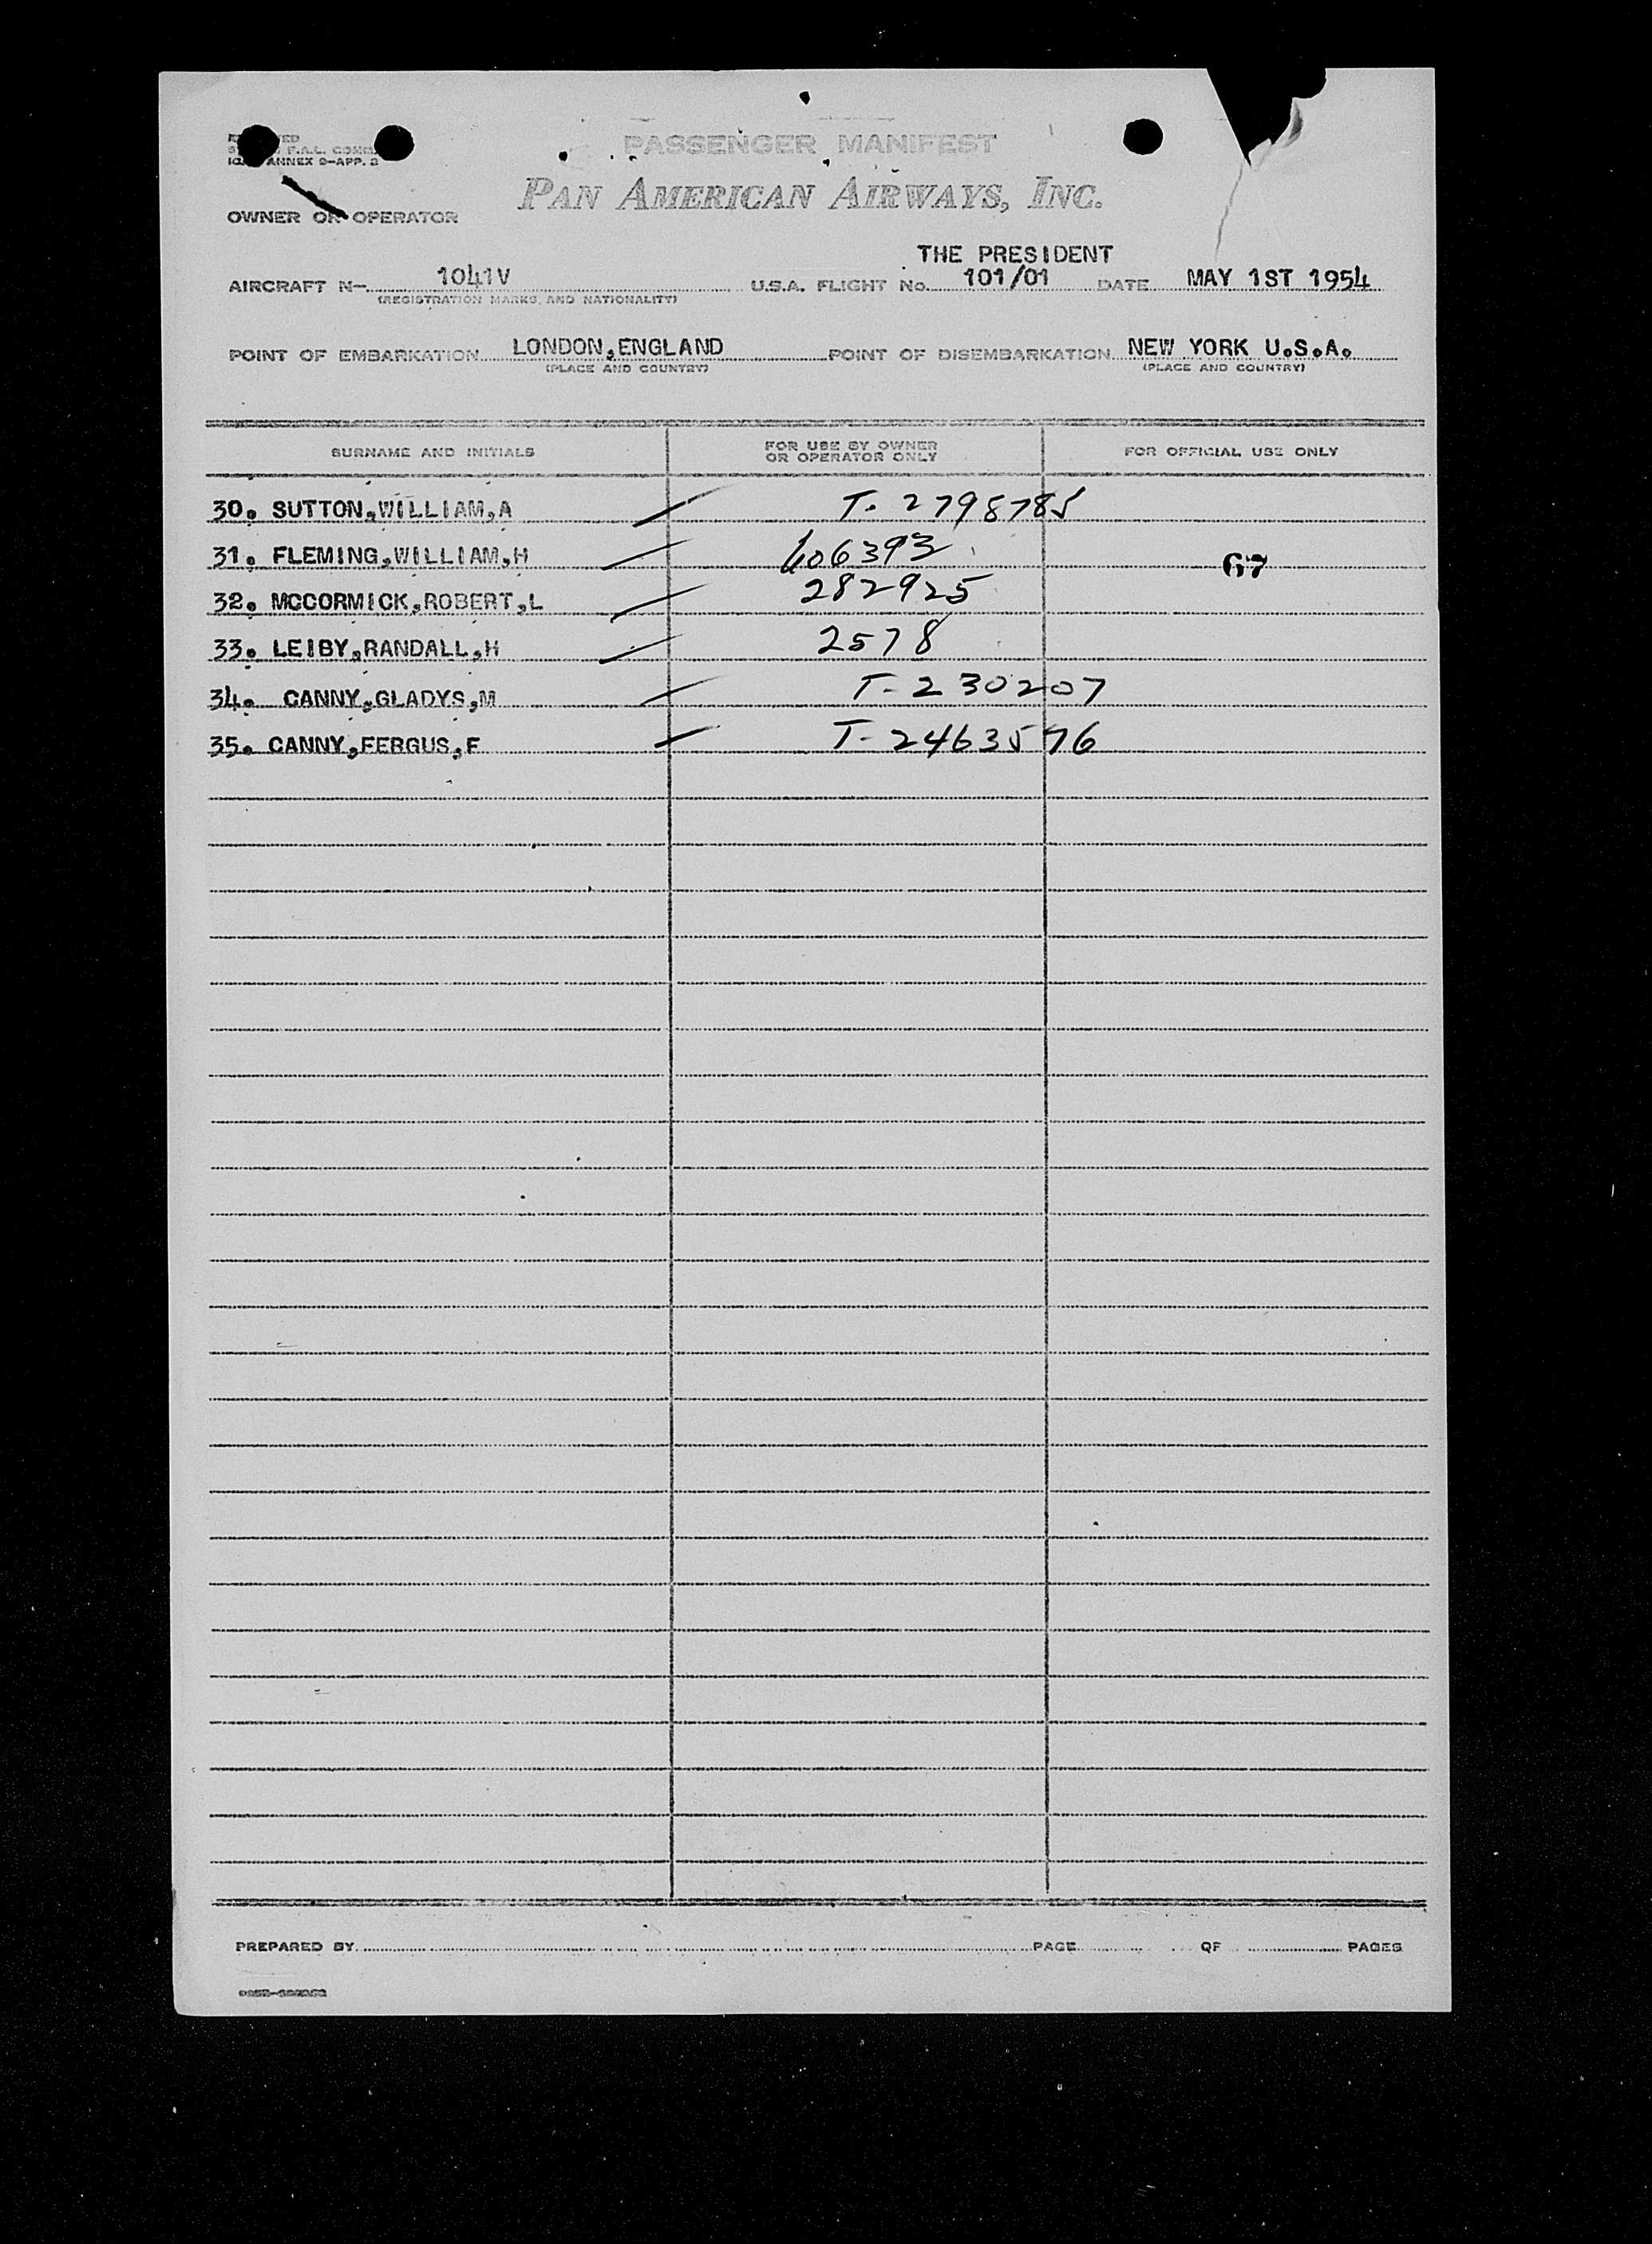 PASSENGER MANIFEST
F.A.L. COMM.
ANNEX 9-APP. 3
PAN AMERICAN AIRWAYS, INC.
OWNER OR OPERATOR
THE PRESIDENT
AIRCRAFT N- 1041V U.S.A. FLIGHT No. 101/01 DATE MAY 1ST 1954
(REGISTRATION MARKS, AND NATIONALITY)
POINT OF EMBARKATION LONDON,ENGLAND POINT OF DISEMBARKATION NEW YORK U.S.A.
(PLACE AND COUNTRY) (PLACE AND COUNTRY)
SURNAME AND INITIALS FOR USE BY OWNER OR OPERATOR ONLY FOR OFFICIAL USE ONLY
30. SUTTON,WILLIAM,A T-2798785
31. FLEMING,WILLIAM,H 606393 67
32. MCCORMICK,ROBERT,L 282925
33. LEIBY,RANDALL,H 2578
34. CANNY,GLADYS,M T-230207
35. CANNY,FERGUS,F T-2463576
PREPARED BY PAGE OF PAGES